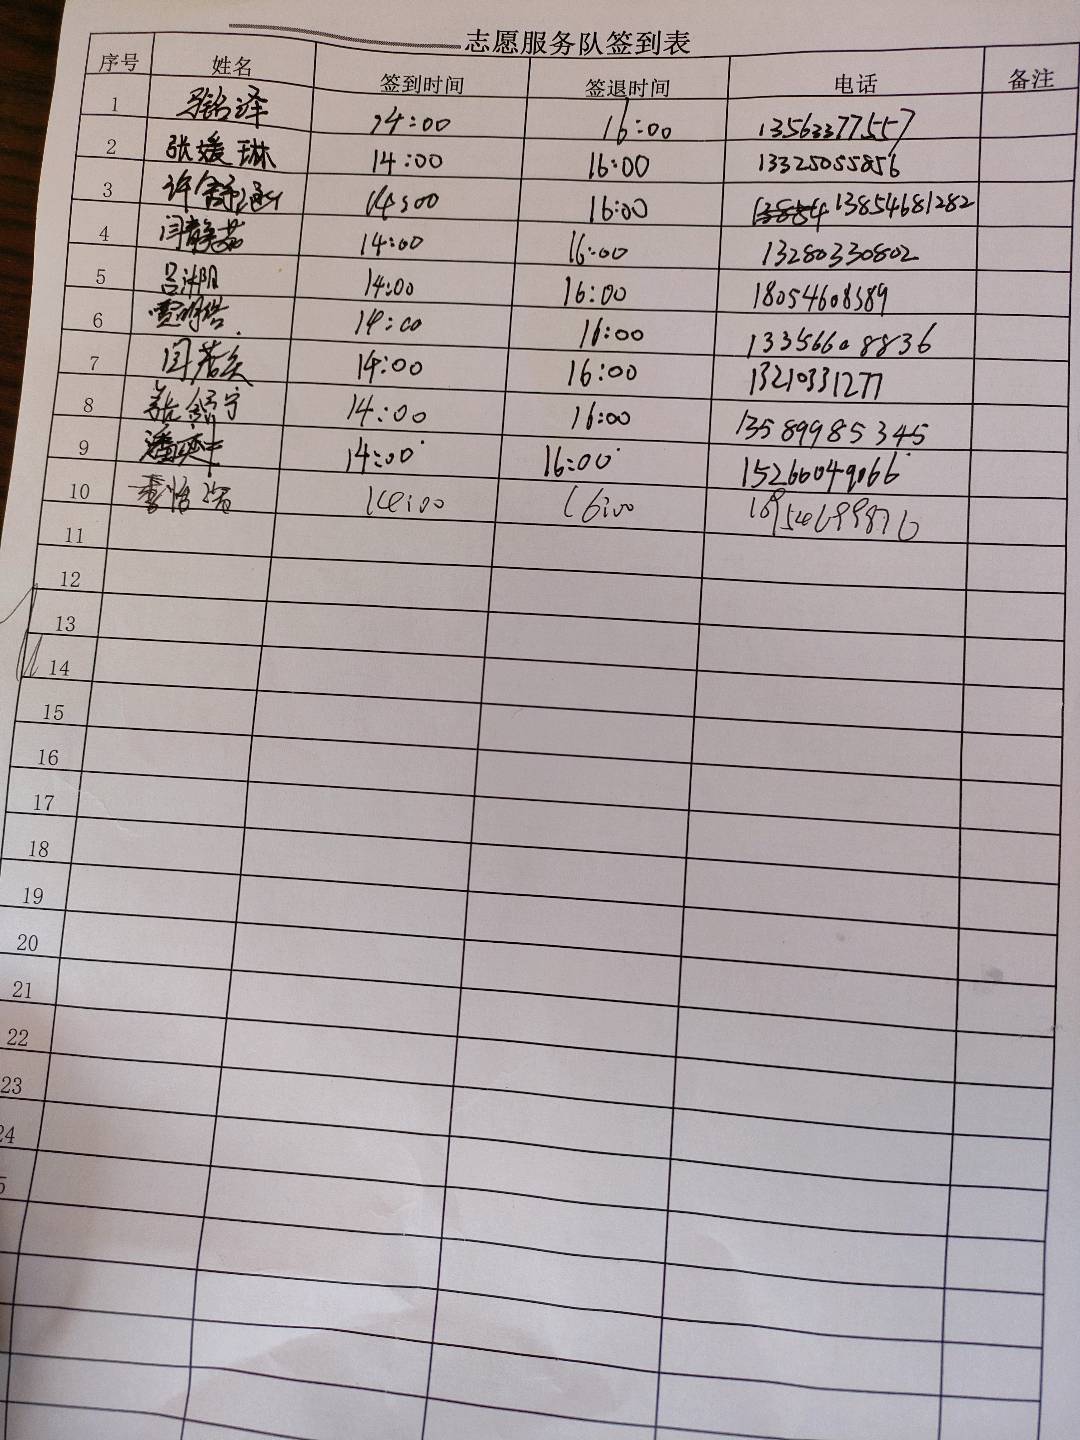 志愿服务队签到表
序号 姓名 签到时间 签退时间 电话 备注
1 铭泽 14:00 16:00 13563377557
2 张媛琳 14:00 16:00 13325055856
3 许舒涵 14:00 16:00 13854681282
4 闫静茹 14:00 16:00 13280330802
5 吕沭阳 14:00 16:00 18054608389
6 贾明浩 14:00 16:00 13356608836
7 闫若 14:00 16:00 13210331277
8 张舒宁 14:00 16:00 13589985345
9 潘 14:00 16:00 15266049066
10 14:00 16:00
11
12
13
14
15
16
17
18
19
20
21
22
23
24
5